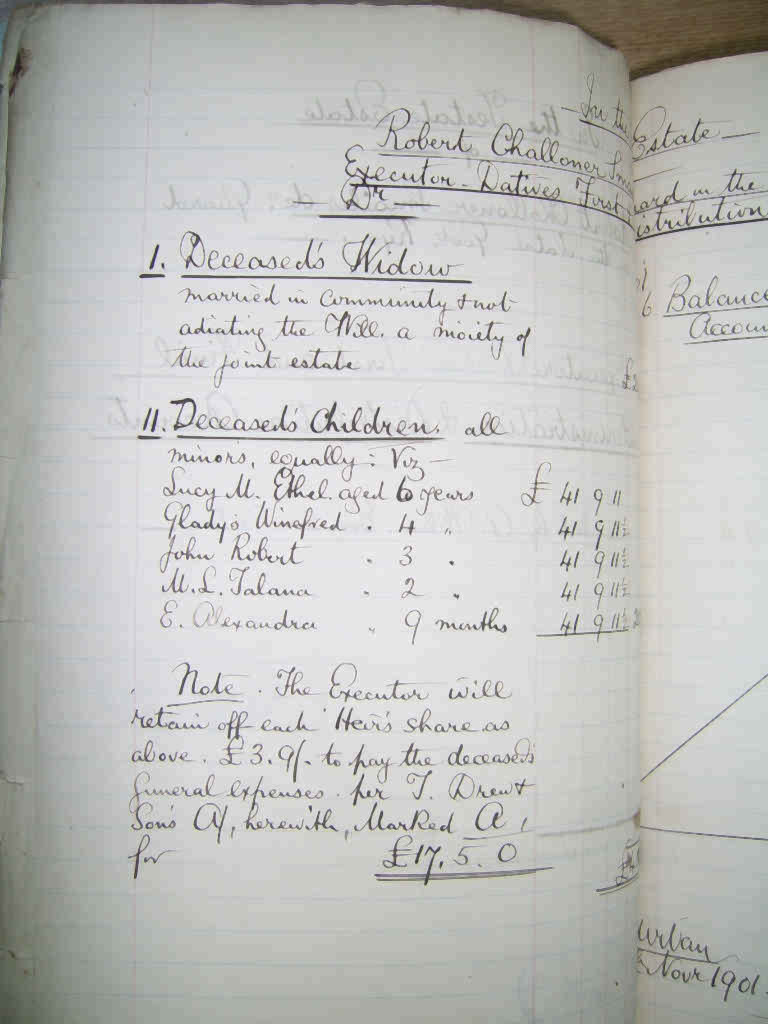 In the
Robert Challoner
Executor-Datives First
Dr
I. Deceased's Widow
married in community & not
adiating the Will. a moiety of
the joint estate
£2
II. Deceased's Children. all
minors, equally: Viz —
Lucy M. Ethel. aged 6 years £ 41 9 11
Gladys Winefred " 4 " 41 9 11½
John Robert " 3 " 41 9 11½
M. L. Talana " 2 " 41 9 11½
E. Alexandra " 9 months 41 9 11½
Note. The Executor will
retain off each Heir's share as
above. £3. 9/- to pay the deceased's
funeral expenses. per T. Drew &
Son's A/, herewith, Marked A,
for £17. 5. 0
Estate —
and in the
istribution
Balance
Accoun
urban
Novr 1901.